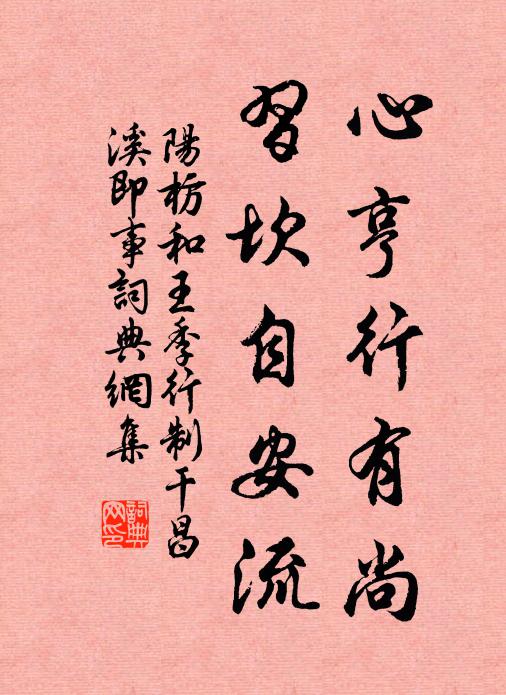 心亨行有尚
習坎自安流
陽枋和王季行制干昌
溪即事詞典網集
詞典
網印